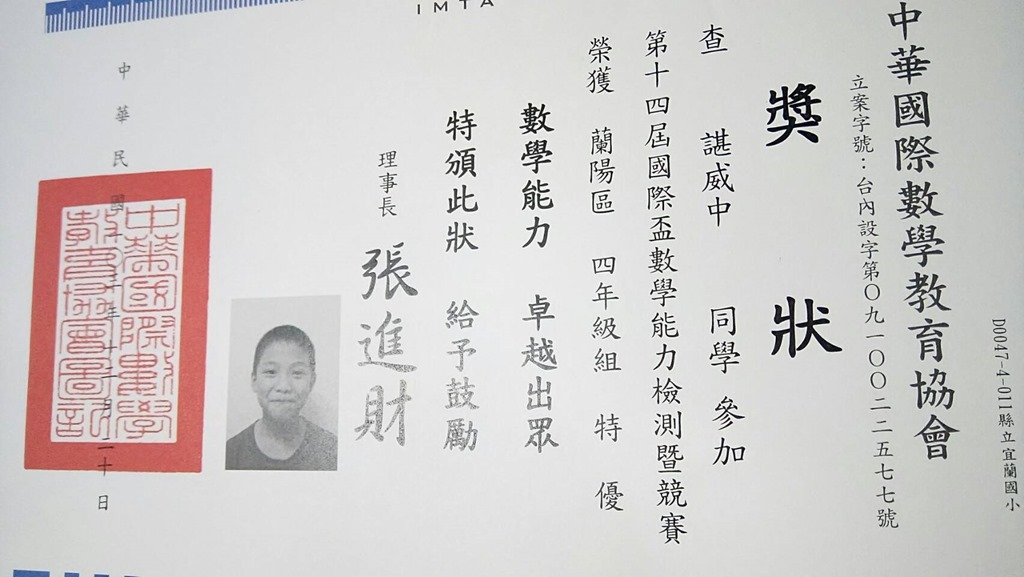 IMTA
D0047-4-011縣立宜蘭國小
中華國際數學教育協會
立案字號：台內設字第〇九一〇〇二二五七七號
獎狀
查 諶威中 同學 參加
第十四屆國際盃數學能力檢測暨競賽
榮獲 蘭陽區 四年級組 特優
數學能力 卓越出眾
特頒此狀 給予鼓勵
理事長 張進財
中華國際數學
教育協會圖記
中華民國一〇三年十二月二十日